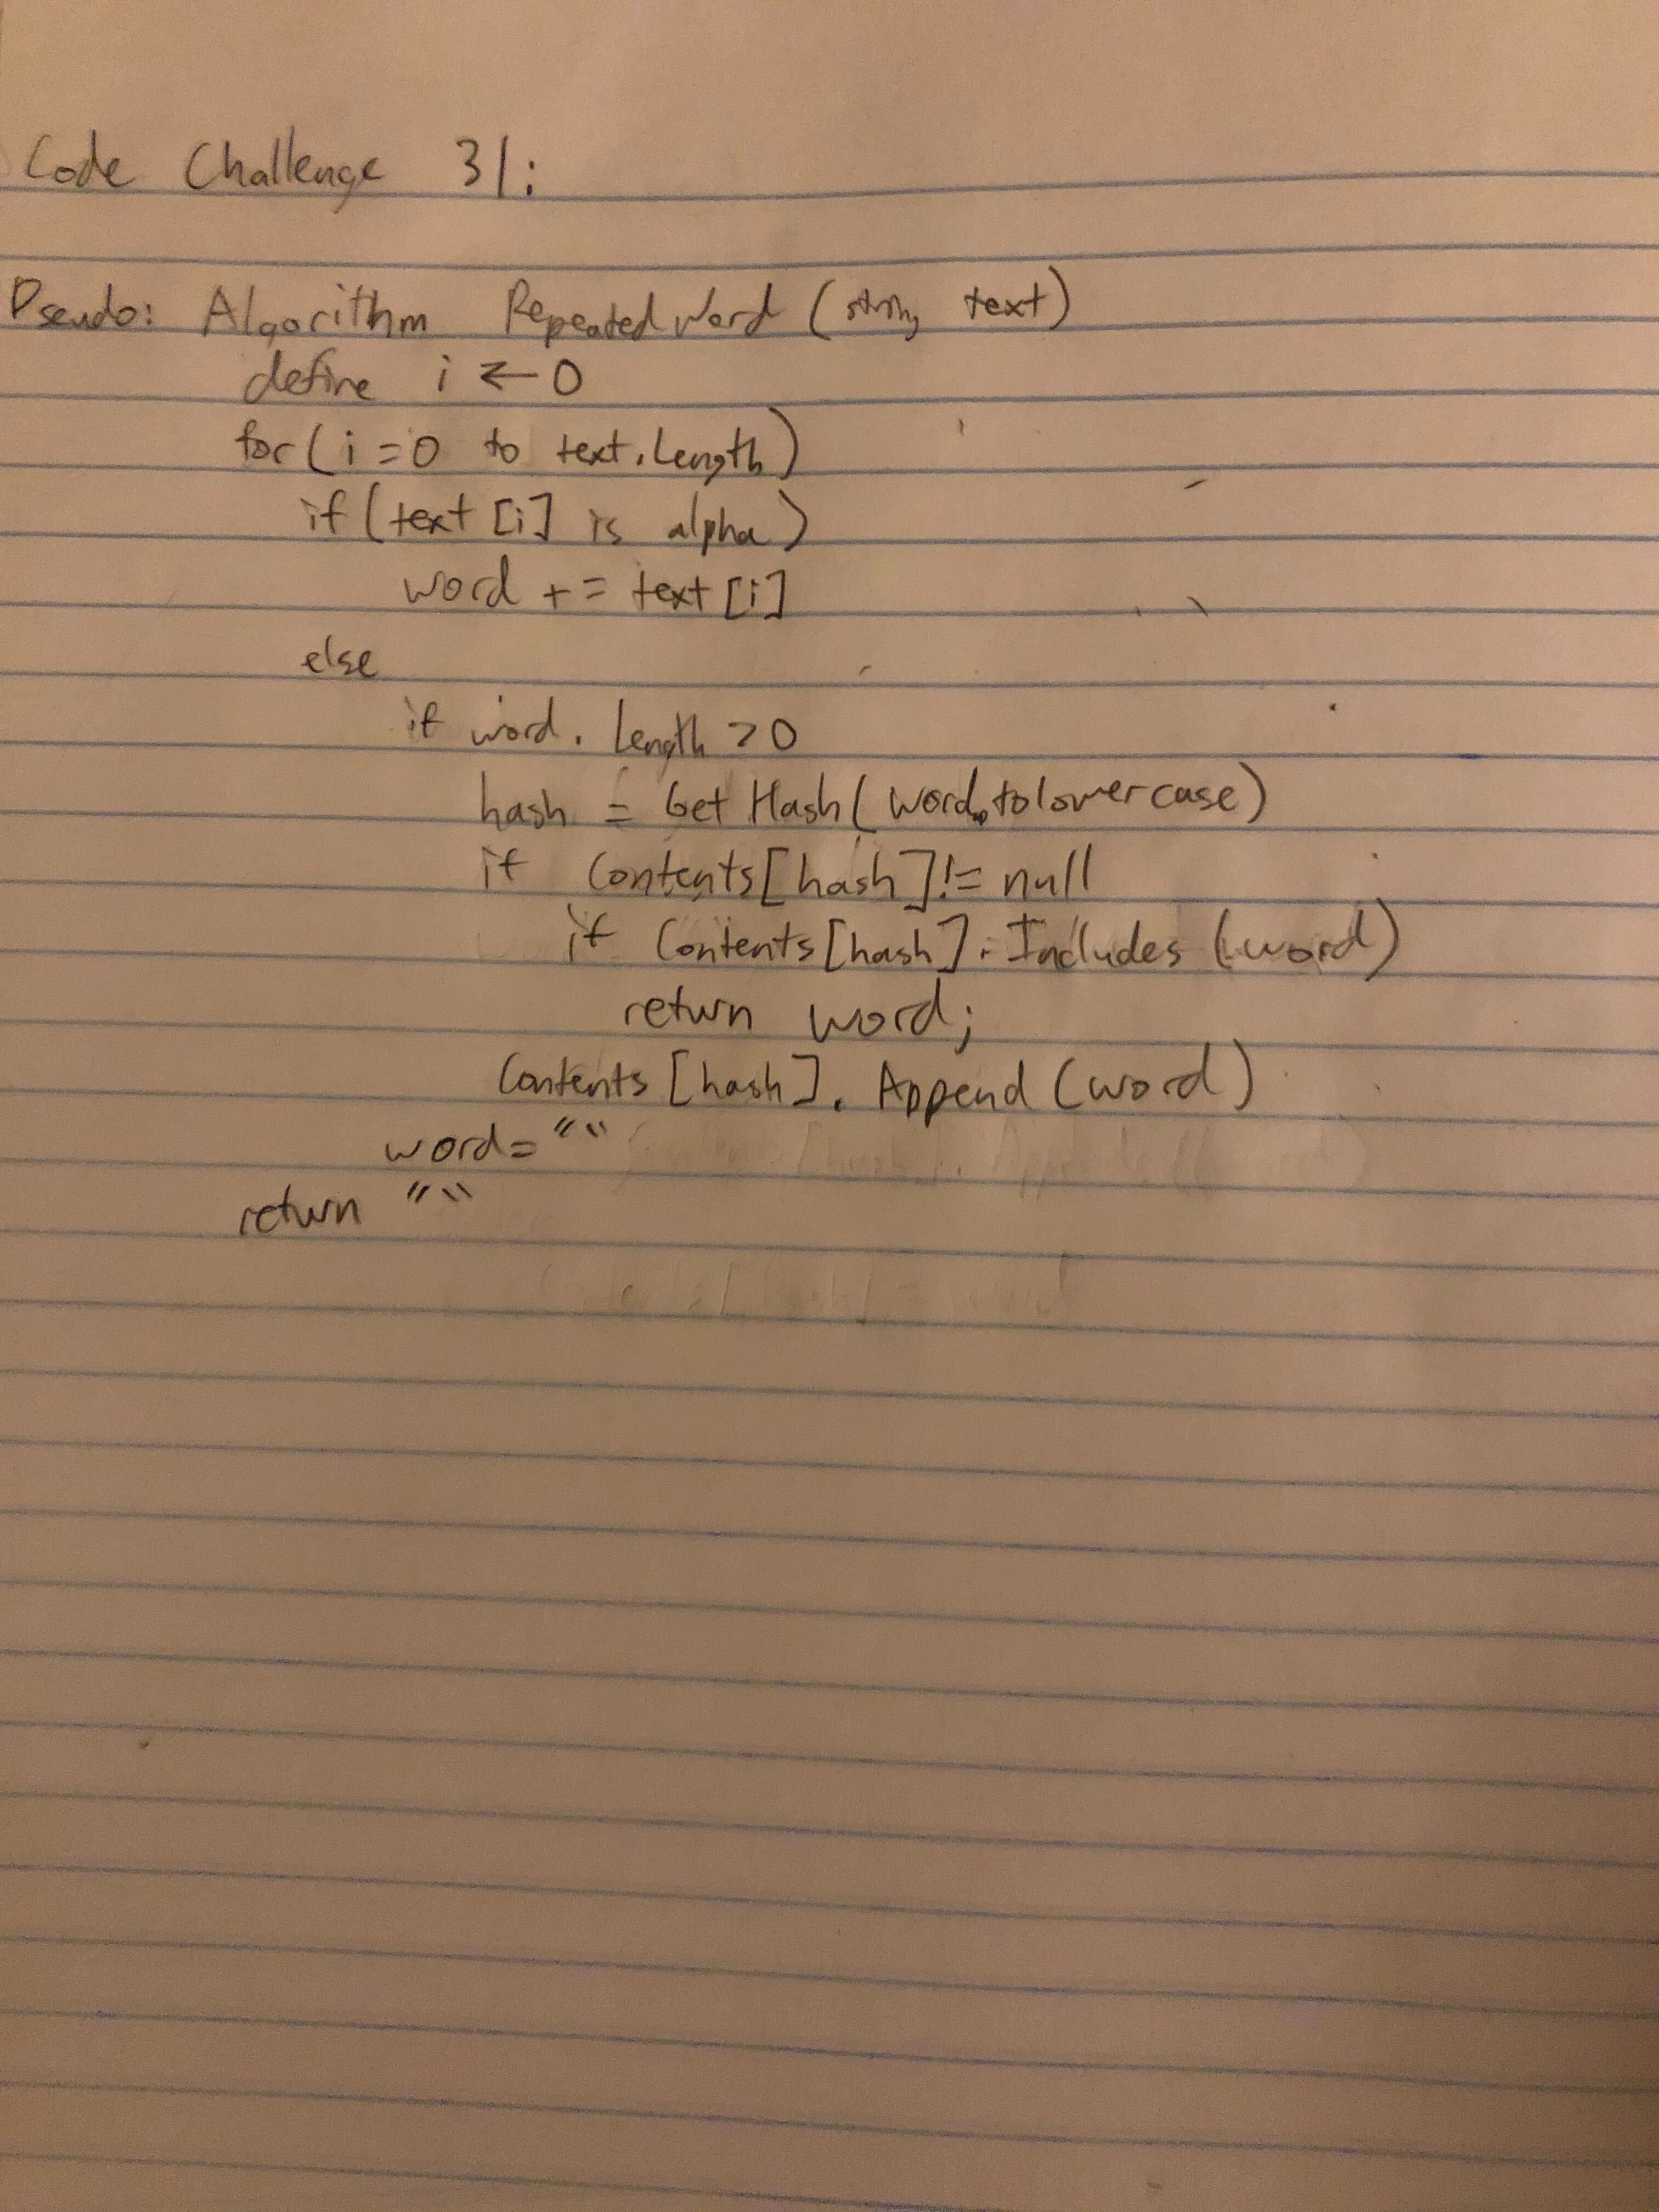 Code Challenge 31:
Pseudo: Algorithm RepeatedWord (string text)
define i ← 0
for ( i = 0 to text.Length)
if (text [i] is alpha)
word += text [i]
else
if word. Length > 0
hash = Get Hash( word.tolowercase)
if Contents[hash] != null
if Contents[hash]. Includes (word)
return word;
Contents [hash]. Append (word)
word = ""
return ""